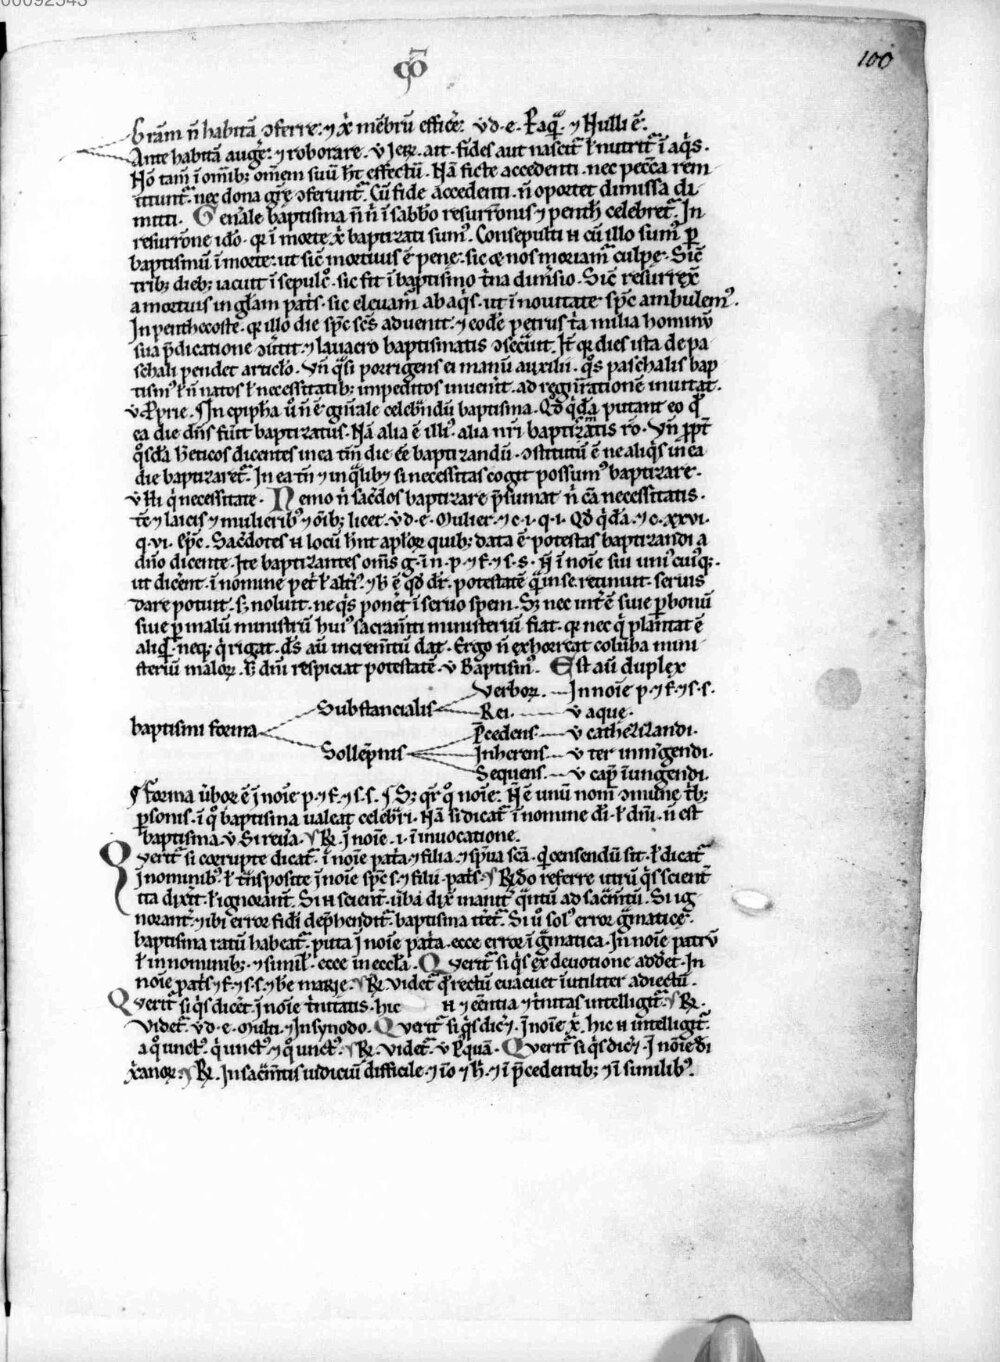 100
Gr̄am n̄ habitā ɔferre ⁊ x̄ mēbrū efficē. v̄ d. e. ⁊ Nulli ē.
Ante habitā augē ⁊ roborare. v̄ ait. fides aut nascit̄ ł nutrit̄ ī aq̄s.
Nō tam̄ ī om̄ib; om̄em suū h̄t effectū. Nā ficte accedenti. nec pecc̄a rem
ittunt̄. nec dona gr̄e ɔferunt̄. Cū fide accedenti. n̄ oportet dimissa di
mitti. Generale baptisma n̄ n̄ ī sabb̄o resurr̄onis ⁊ penth̄ celebret̄. In
resurr̄one id̄o. q̄r ī morte x̄ baptizati sum᷒. Consepulti n̄ cū illo sum᷒ p̄
baptismū ī morte: ut sic̄ mortuus ē pene: sic ⁊ nos moriam̄ culpe. Sic̄
trib; dieb; iacuit ī sepulc̄o. sic fit ī baptismo t̄na dim̄sio. Sic̄ resurrex̄
a mortuis in gl̄am pat̄s. sic eleuam̄ ab aq̄s. ut ī nouitate sp̄c ambulem᷒.
In penthecoste. q̄r illo die sp̄c sc̄s aduenit. ⁊ eodē petrus t̄a milia hominū
sua p̄dicatione ɔūtit. ⁊ lauacro baptismatis ɔsec̄uit. It̄ q̄r dies ista de pa
schali pendet articl̄o. Vn̄ q̄si porrigens ei manū auxilii. q̄s paschalis bap
tism᷒ ł n̄ natos ł necessitatib; impeditos inuenit. ad regn̄rationē inuitat.
v̄ prie. ¶ In epiph̄a ū n̄ ē gn̄ale celebr̄ndū baptisma. Qd̄ q̄dā putant eo q̄
ea die dn̄s fūit baptizatus. Nā alia ē illi᷒. alia nr̄i baptizatis rō. Vn̄ ppt̄
q̄sdā h̄eticos dicentes in ea tm̄ die ēē baptizandū. ɔstitutū ē ne aliq̄s in ea
die baptizaret̄. In ea tn̄ ⁊ in q̄lib; si necessitas cogit possum᷒ baptizare.
v̄ Hi q̄ necessitate. Nemo n̄ sac̄dos baptizare p̄sumat n̄ cā necessitatis.
tc̄ ⁊ laicis ⁊ mulierib᷒ ⁊ oīb; licet. v̄ d. e. Mulier. ⁊ c. i. q. i. Qd̄ q̄dā. ⁊ c. xxvi.
q. vi. sp̄c. Sac̄dotes n̄ locū h̄nt apl̄oꝝ quib; data ē potestas baptizandi a
dn̄o dicente. Ite baptizantes om̄s g. ī n. p. ⁊ f. ⁊ s. s. n̄ ī noīe sui uni᷒cuiq;.
ut dic̄ent. ī nomine pet̄ ł alt̄i᷒. ⁊ h̄ ē qd̄ dr̄. potestatē q̄ in se retinuit. seruis
dare potuit. s; noluit. ne q̄s ponēt ī seruo spem. S; nec int̄ē siue p̄ bonū
siue p̄ malū ministrū hui᷒ sacram̄ti ministeriū fiat. q̄r nec q̄ plantat ē
aliq̄d. neq; q̄ rigat. d̄s aū increm̄tū dat. Ergo n̄ exhorreat colūba mini
steriū maloꝝ. s; dn̄i respiciat potestatē. v̄ Baptism᷒. Est aū duplex
baptismi forma
Substancialis
Verboꝝ. In noīe p. ⁊ f. ⁊ s. s.
Rei. v̄ aque.
Sollēpnis
P̄cedens. v̄ cathezizandi.
Inherens. v̄ ter inm̄gendi.
Sequens. v̄ cap̄ iungendi.
¶ Forma ūboꝝ ē ī noīe p. ⁊ f. ⁊ s. s. ¶ S; qr̄ q̄ noīe. n̄ ē unū nom̄ ɔmune t̄b;
p̄sonis. ī q̄ baptisma ualeat celebr̄i. Nā si dicat̄ ī nomine di̅ ł dn̄i. n̄ est
baptisma. v̄ Si reu̅a. ¶ R̄. ī noīe. i. ī inuocatione.
Querit̄ si corrupte dicat̄. ī noīe pat̄a ⁊ filia ⁊ sp̄ua sc̄a. q̄ censendū sit. ł dicat̄
ī nominib; ł t̄nsposite ī noīe sp̄c s. ⁊ filii. pat̄s. ¶ R̄. do referre utrū q̄s scient̄
ita dix̄it. ł ignorant̄. Si n̄ scient̄. ūba dix̄ mutit̄ q̄ntū ad sac̄mtū. Si ig
norant̄ ⁊ ibi error fidei dep̄hendit̄. baptisma it̄et̄. Si ū sol᷒ error gm̄atice.
baptisma ratū habeat̄. puta ī noīe pat̄a. ecce error ī gm̄atica. In noīe patrū
ł in nominib;. ⁊ simil̄. ecce in eccl̄a. Querit̄ si q̄s ex deuotione addet. In
noīe pat̄s ⁊ f. ⁊ s. s. ⁊ be marie. ¶ R̄. videt̄ q̄ rectū euacuet iutiliter adiectū.
Querit̄ si q̄s dic̄et. ī noīe t̄nitatis. hic n̄ ⁊ eēntia ⁊ t̄nitas intelligit̄. ¶ R̄.
Videt̄. v̄ d. e. Multi. ⁊ In synodo. Querit̄ si q̄s dic̄et. ī noīe x̄. hic n̄ intelligit̄.
a q̄ unct᷒. q̄ unct᷒ ⁊ q̄ unct᷒. ¶ R̄. videt̄. Querit̄ si q̄s dic̄et. ī noīe di
x̄anoꝝ. ¶ R̄. In sac̄mtis iudiciū difficile ⁊ īo ⁊ h̄. ⁊ ī p̄cedentib; ⁊ ī similib᷒.